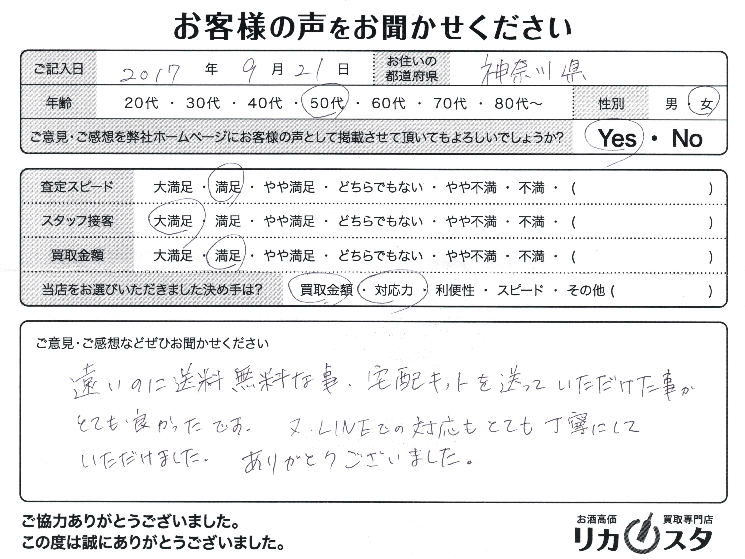 お客様の声をお聞かせください
ご記入日 2017 年 9 月 21 日 お住いの都道府県 神奈川県
年齢 20代 ・ 30代 ・ 40代 ・ 50代 ・ 60代 ・ 70代 ・ 80代～ 性別 男 ・ 女
ご意見・ご感想を弊社ホームページにお客様の声として掲載させて頂いてもよろしいでしょうか? Yes ・ No
査定スピード 大満足 ・ 満足 ・ やや満足 ・ どちらでもない ・ やや不満 ・ 不満 ・ ( )
スタッフ接客 大満足 ・ 満足 ・ やや満足 ・ どちらでもない ・ やや不満 ・ 不満 ・ ( )
買取金額 大満足 ・ 満足 ・ やや満足 ・ どちらでもない ・ やや不満 ・ 不満 ・ ( )
当店をお選びいただきました決め手は? 買取金額 ・ 対応力 ・ 利便性 ・ スピード ・ その他 ( )
ご意見・ご感想などぜひお聞かせください
遠いのに送料無料な事、宅配キットを送っていただけた事が
とても良かったです。 又、LINEでの対応もとても丁寧にして
いただけました。 ありがとうございました。
ご協力ありがとうございました。
この度は誠にありがとうございました。
お酒高価 買取専門店
リカスタ